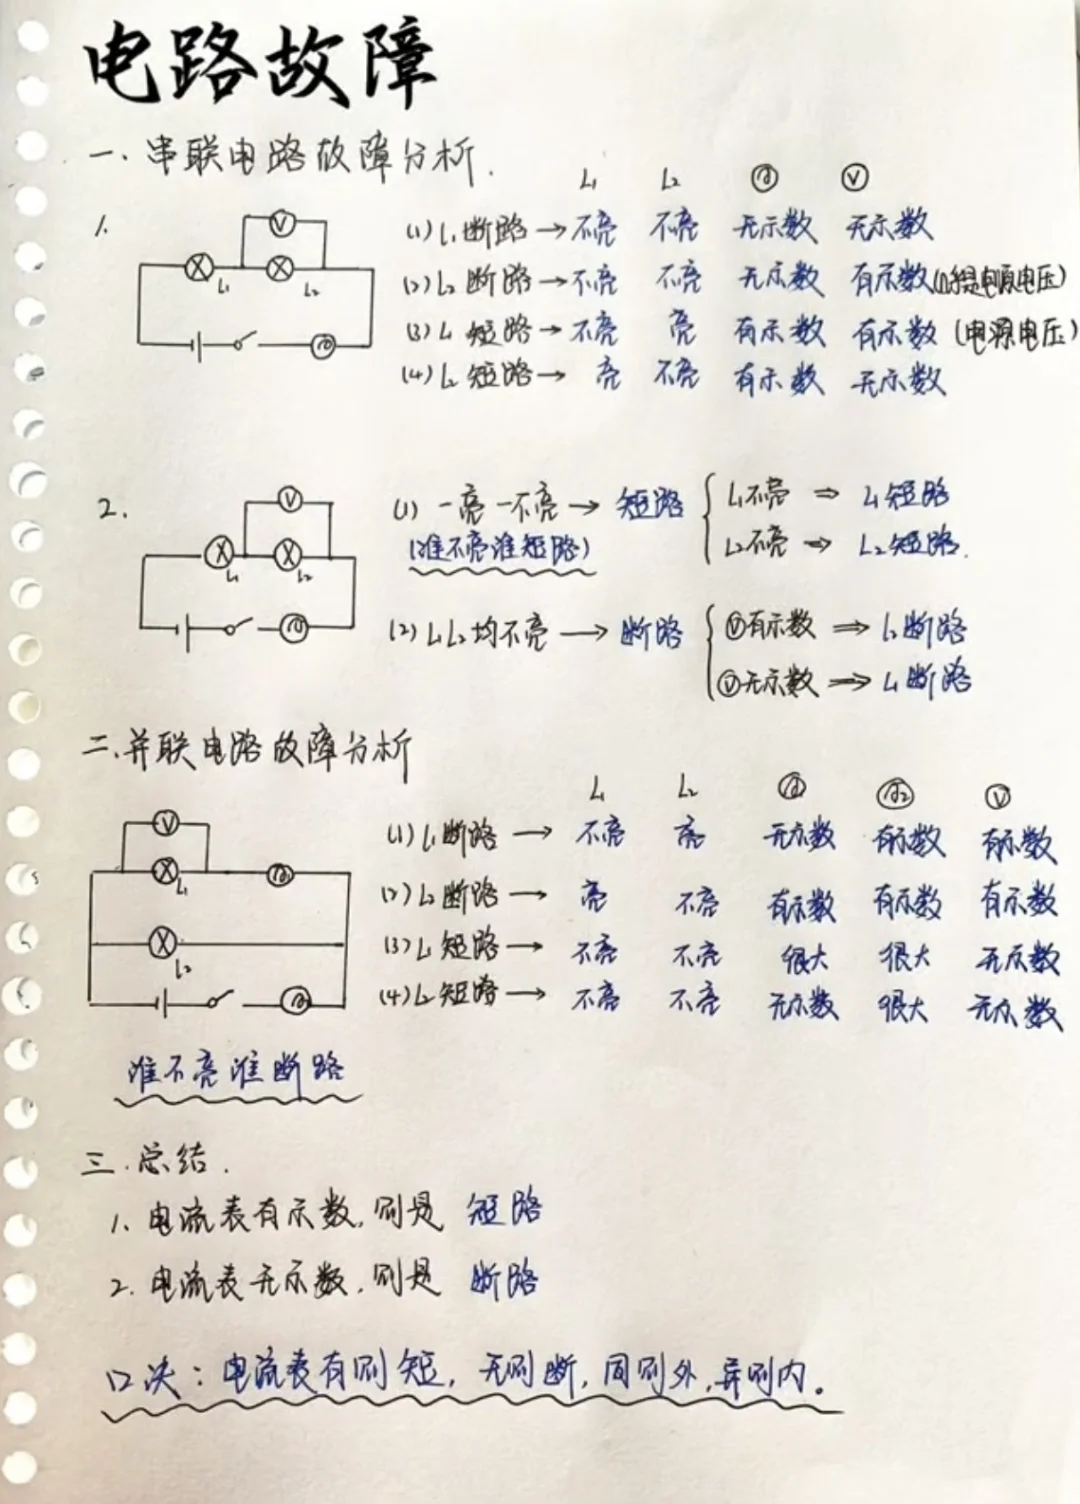 电路故障
一、串联电路故障分析.
L₁ L₂ Ⓐ Ⓥ
1.
V
L₁ L₂
A
(1) L₁断路→不亮 不亮 无示数 无示数
(2) L₂断路→不亮 不亮 无示数 有示数(电源电压)
(3) L₁短路→不亮 亮 有示数 有示数(电源电压)
(4) L₂短路→亮 不亮 有示数 无示数
2.
V
L₁ L₂
A
(1) 一亮一不亮→短路 { L₁不亮⇒L₁短路
(谁不亮谁短路) L₂不亮⇒L₂短路.
(2) L₁L₂均不亮→断路 { Ⓥ有示数⇒L₂断路
Ⓥ无示数⇒L₁断路
二.并联电路故障分析
L₁ L₂ Ⓐ Ⓐ₂ Ⓥ
V
L₁
A
L₂
A
(1) L₁断路→不亮 亮 无示数 有示数 有示数
(2) L₂断路→亮 不亮 有示数 有示数 有示数
(3) L₁短路→不亮 不亮 很大 很大 无示数
(4) L₂短路→不亮 不亮 无示数 很大 无示数
谁不亮谁断路
三.总结.
1. 电流表有示数,则是 短路
2. 电流表无示数,则是 断路
口决:电流表有则短,无则断,同则外,异则内。